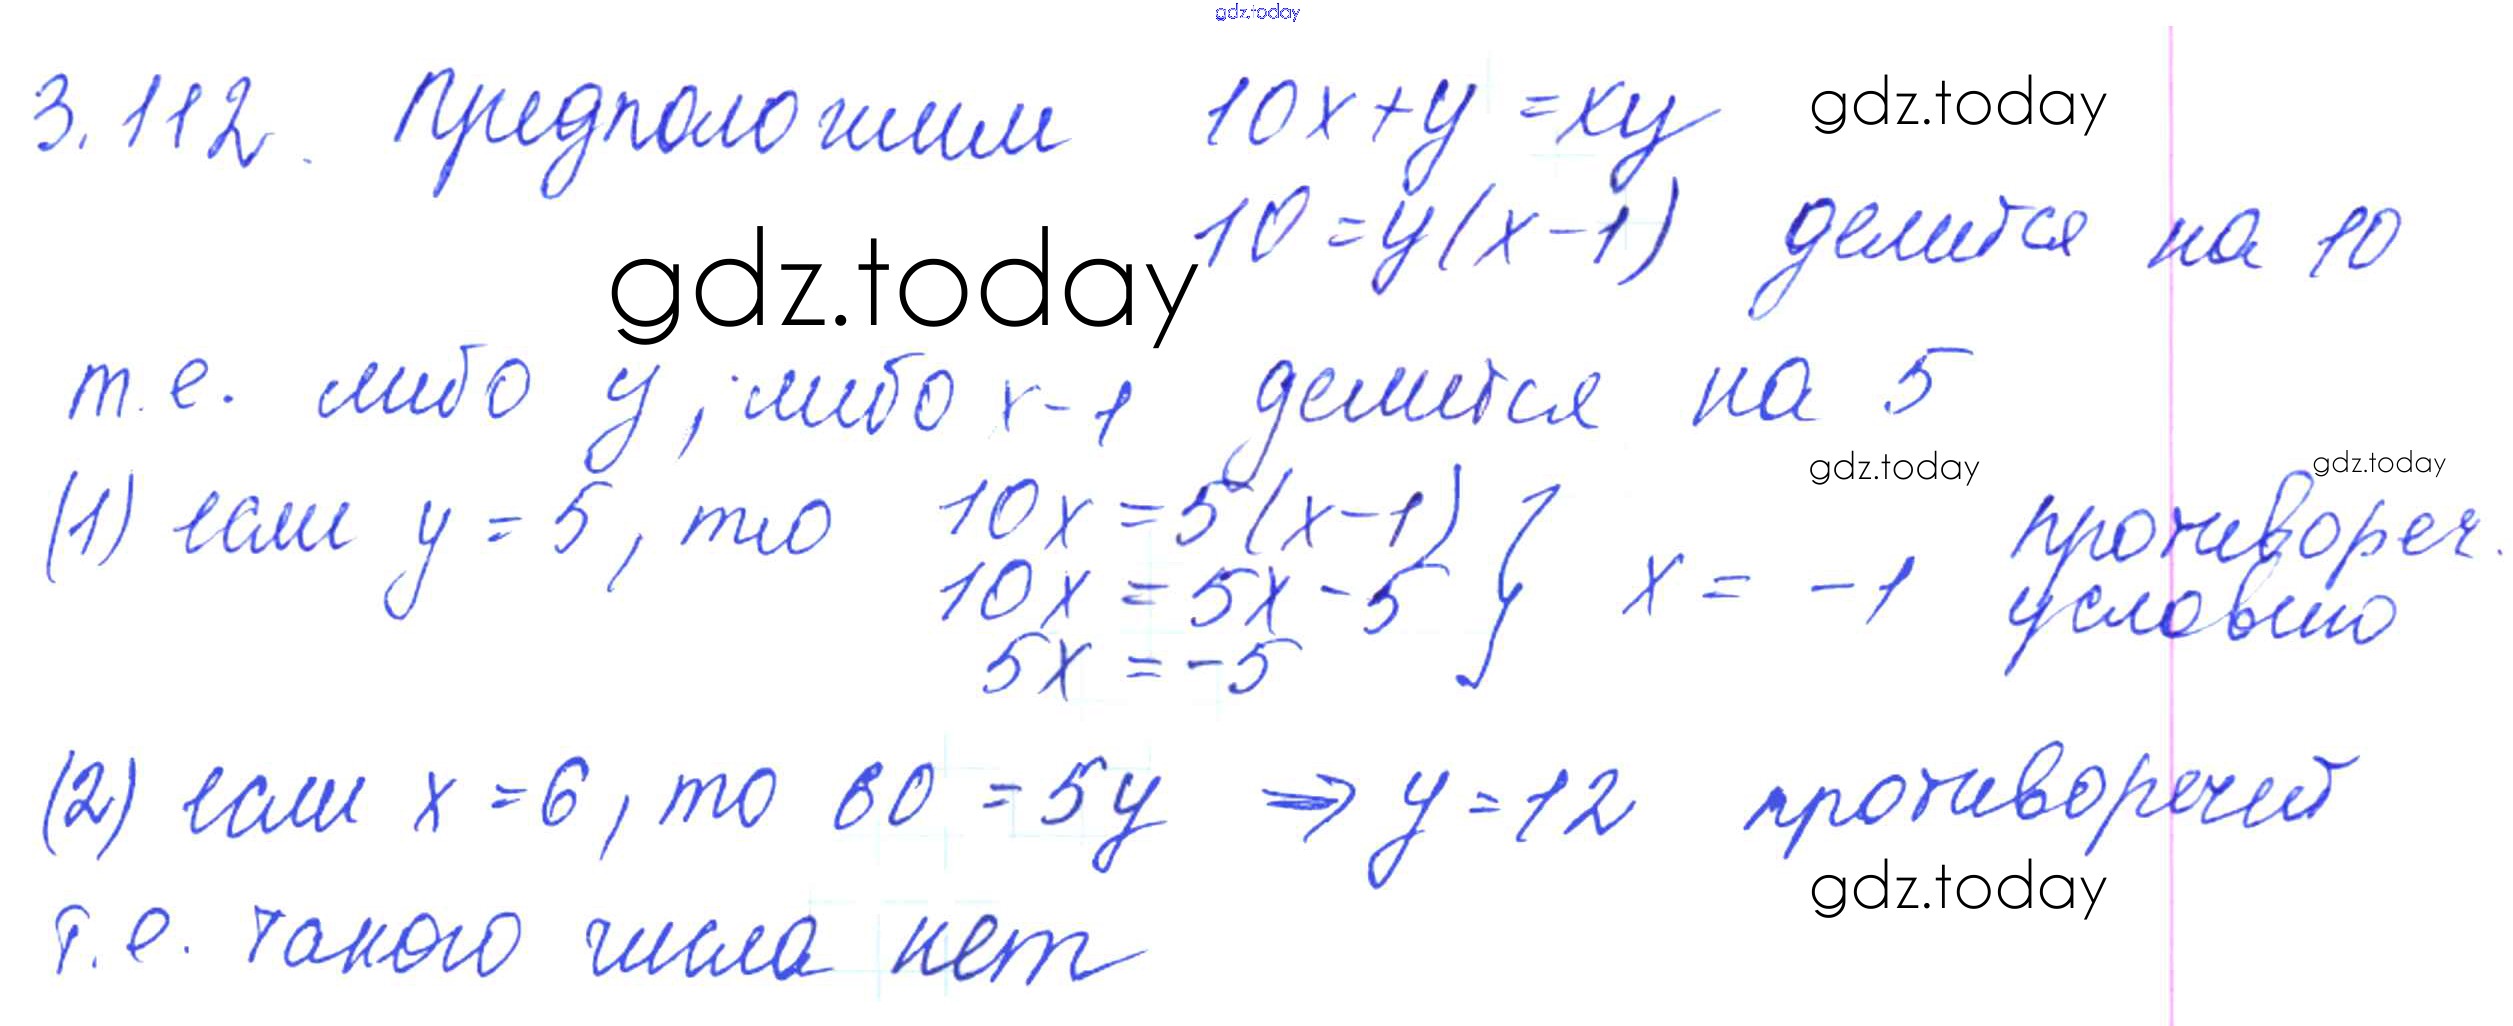 gdz.today
3.112. Предположим 10x+y =xy gdz.today
10 =y(x-1) делится на 10
gdz.today
т.е. либо y, либо x-1 делится на 5
gdz.today gdz.today
(1) если y=5, то 10x =5(x-1)
10x = 5x-5 x = -1 противореч. условию
5x = -5
(2) если x=6, то 60 =5y ⇒ y=12 противоречит
gdz.today
т.е. такого числа нет